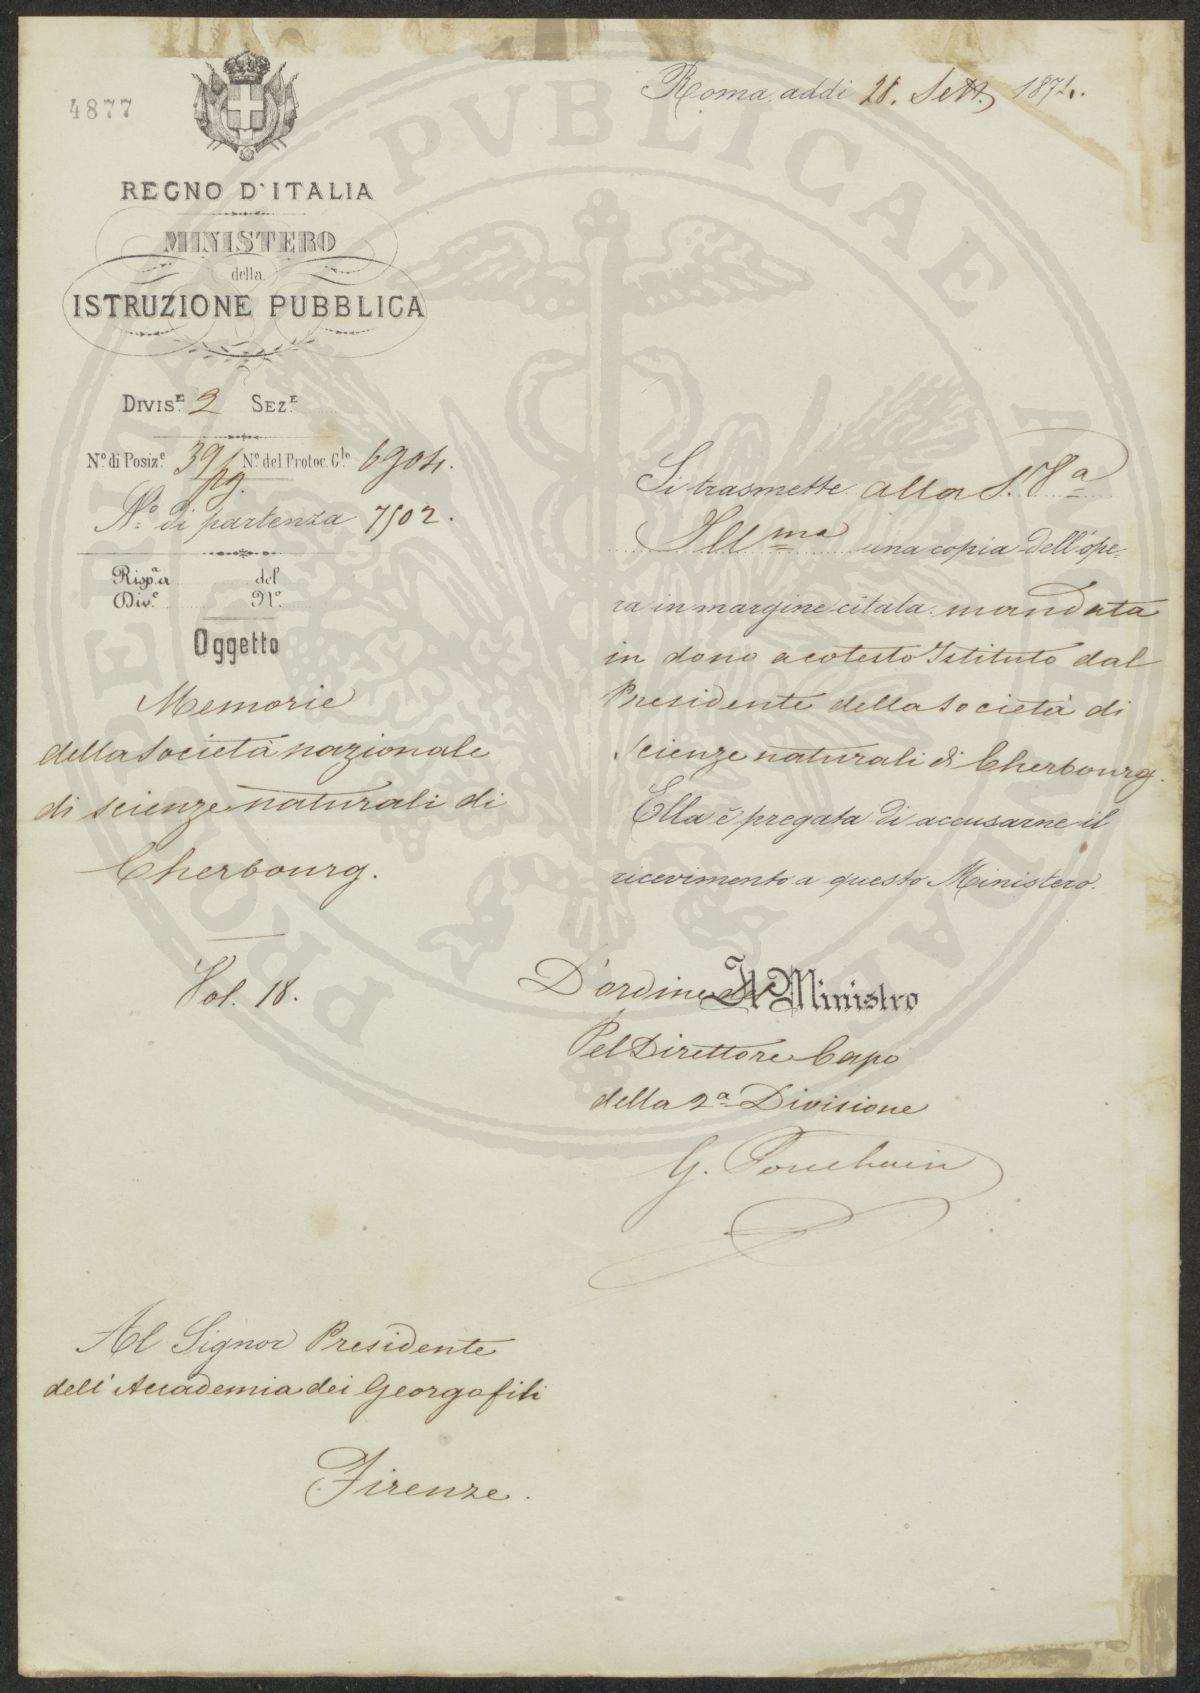 4877
Roma, addì 28. Sett. 1874.
REGNO D'ITALIA
MINISTERO
della
ISTRUZIONE PUBBLICA
Divis.e 2 Sez.e
N.o di Posiz.e 39 pg. N.o del Protoc. G.le 6904.
N.o di partenza 7502.
Risp.a a del
Div.e N.o
Oggetto
Memorie
della Società nazionale
di scienze naturali di
Cherbourg.
Vol. 18.
Si trasmette alla S. V.a
Ill.ma una copia dell'ope-
ra in margine citata mandata
in dono a cotesto Istituto dal
Presidente della Società di
scienze naturali di Cherbourg.
Ella è pregata di accusarne il
ricevimento a questo Ministero.
D'ordine del Il Ministro
Pel Direttore Capo
della 2.a Divisione
G. Pouchain
Al Signor Presidente
dell'Accademia dei Georgofili
Firenze.
PROSPERITATI PUBLICAE AUGENDAE